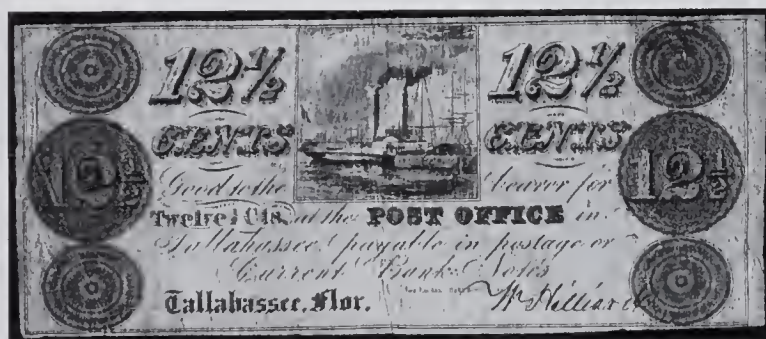 12½ 12½
CENTS CENTS
12½ 12½
Good to the bearer for
Twelve ½ Cts. at the POST OFFICE in
Tallahassee, payable in postage or
Current Bank Notes
Tallahassee, Flor. Wm Hilliard